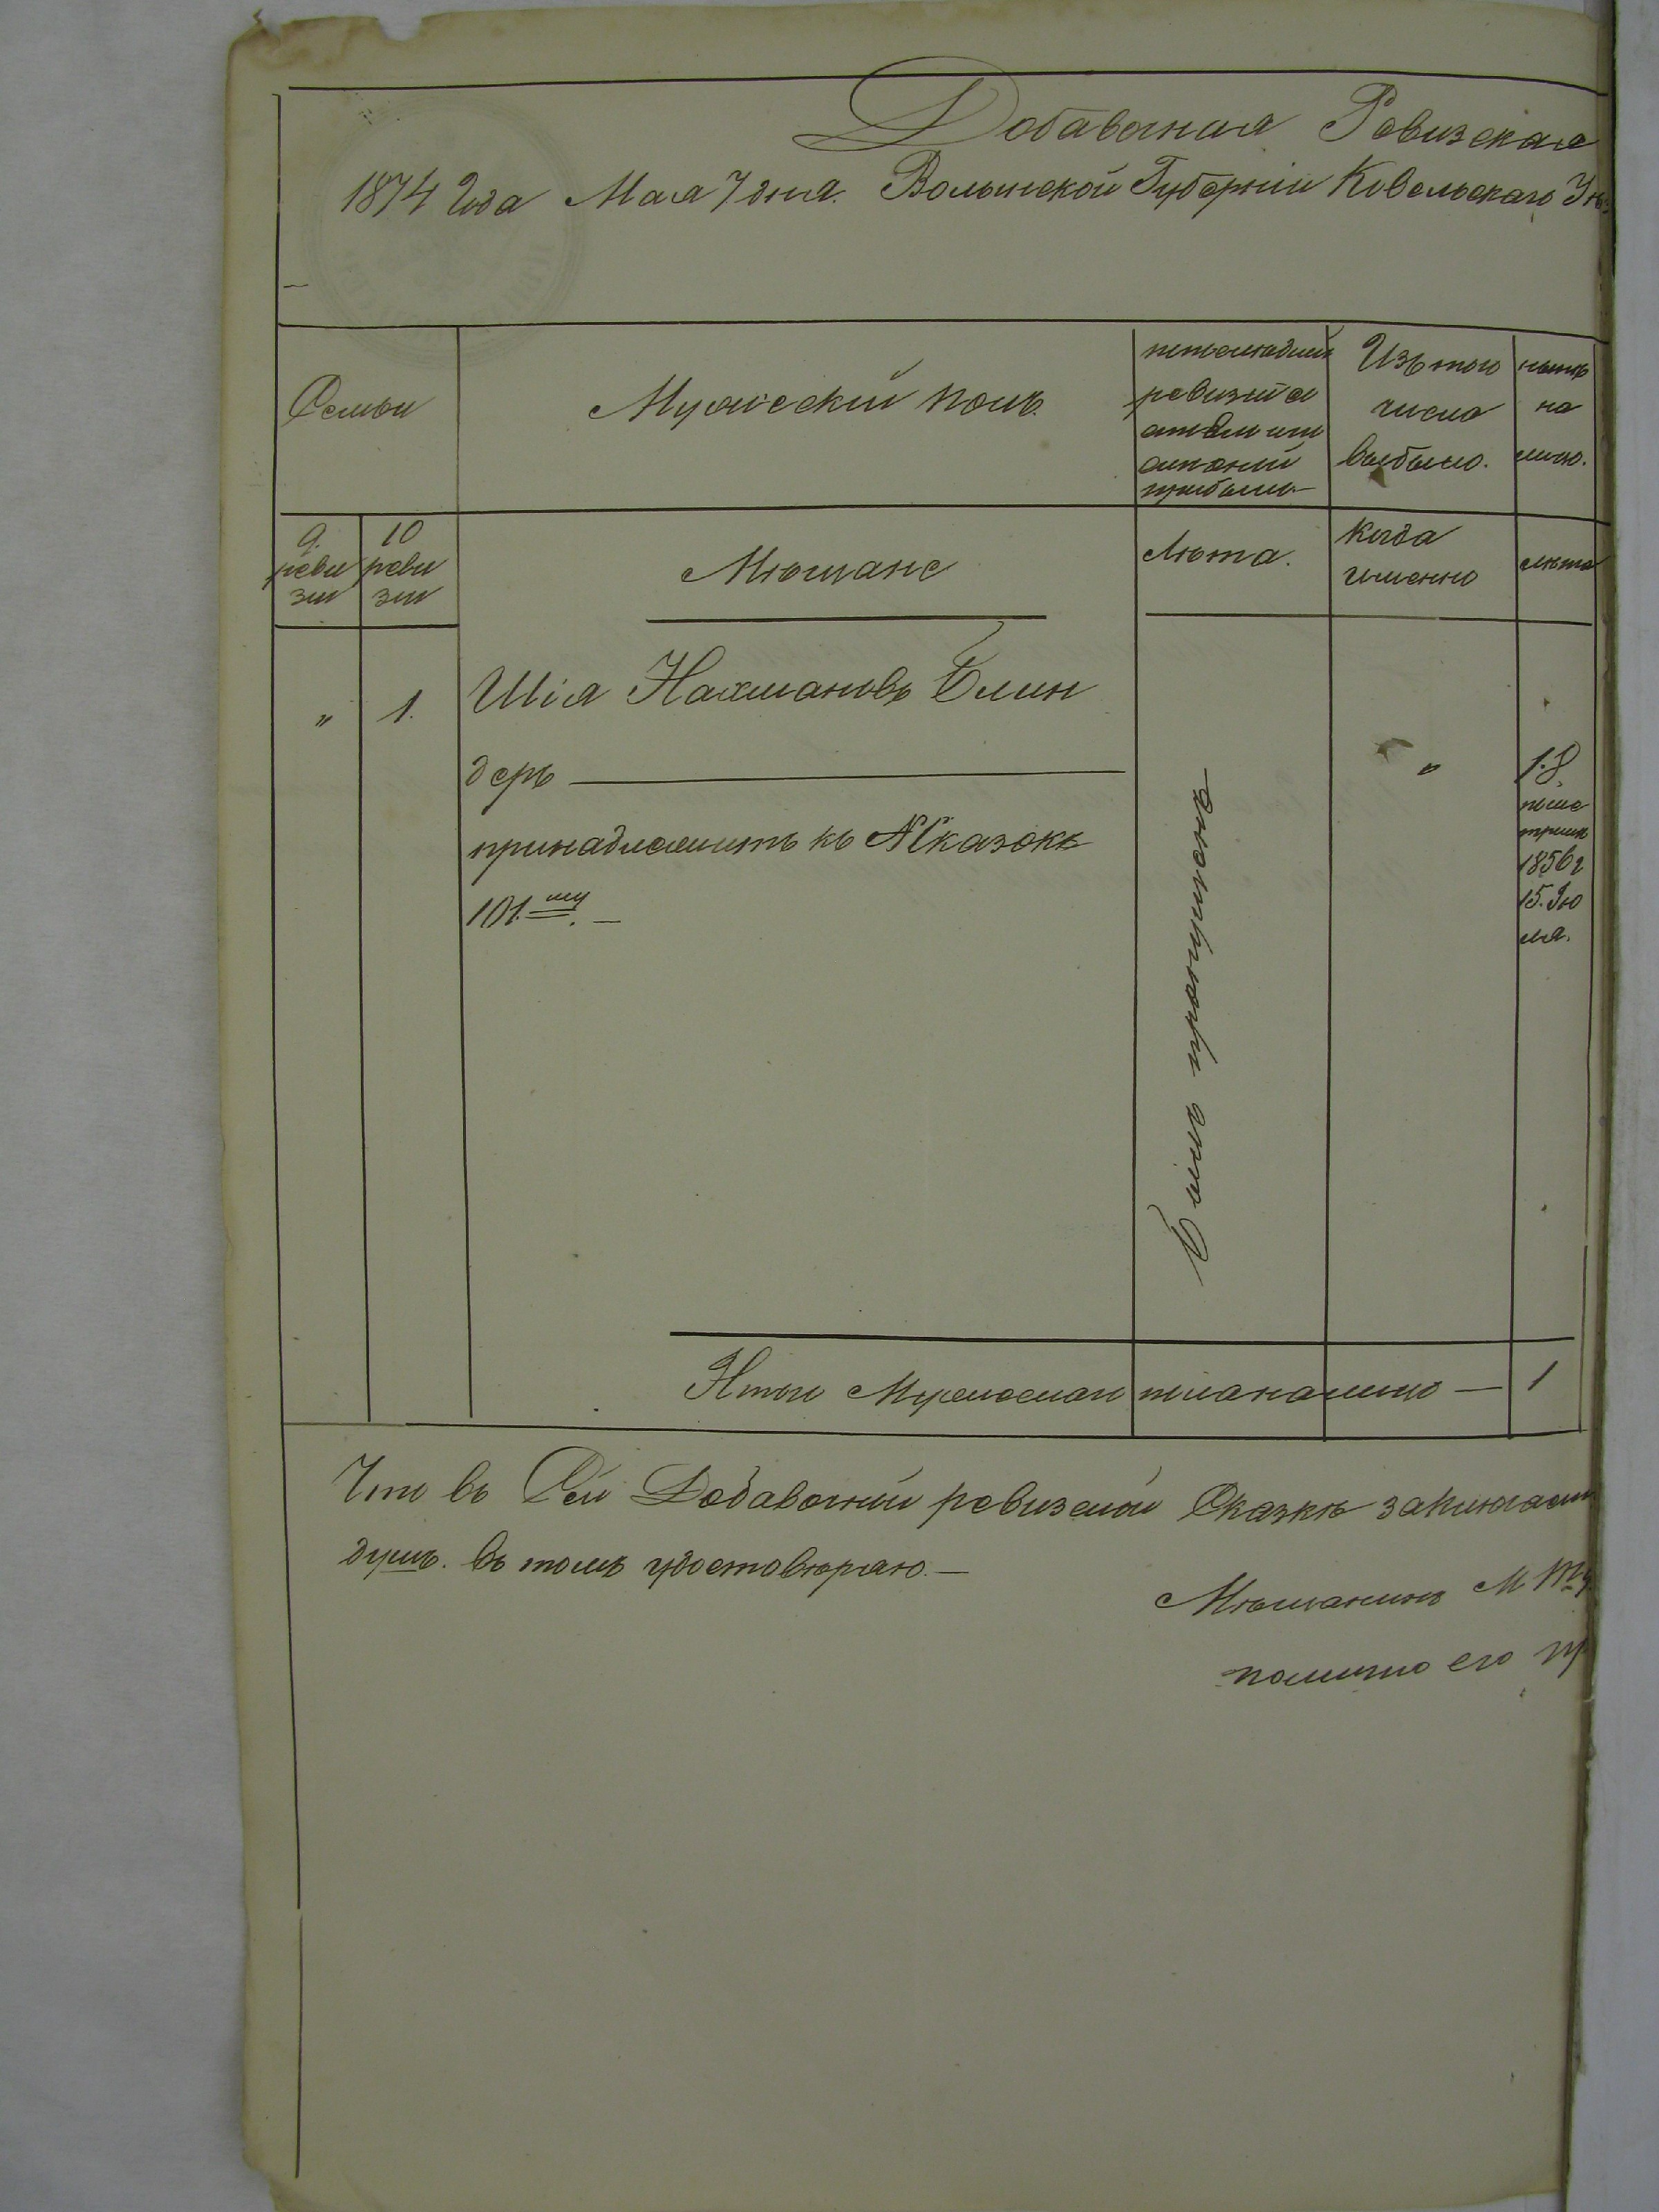 Добавочная Ревизская
1874 Года Мая 7 дня. Волынской Губерніи Ковельскаго Уѣ
Семьи
Мужескій полъ.
ревизіи
прибыло
Изъ того
числа
выбыло.
нынѣ
на
лицо.
9.
реви
зіи
10
реви
зіи
Мѣщане
Лѣта.
Когда
именно
лѣта
" 1. Шія Нахмановъ Блин
деръ
принадлежитъ къ № Сказокъ
101.му. —
Былъ пропущенъ
"
18.
1856 г
15. Ію
ля.
Итого Мужескаго пола налицо — 1
Что въ Сей Добавочной ревизской Сказкѣ заключает
душъ. въ томъ удостовѣряю. —
Мѣщанинъ М
его